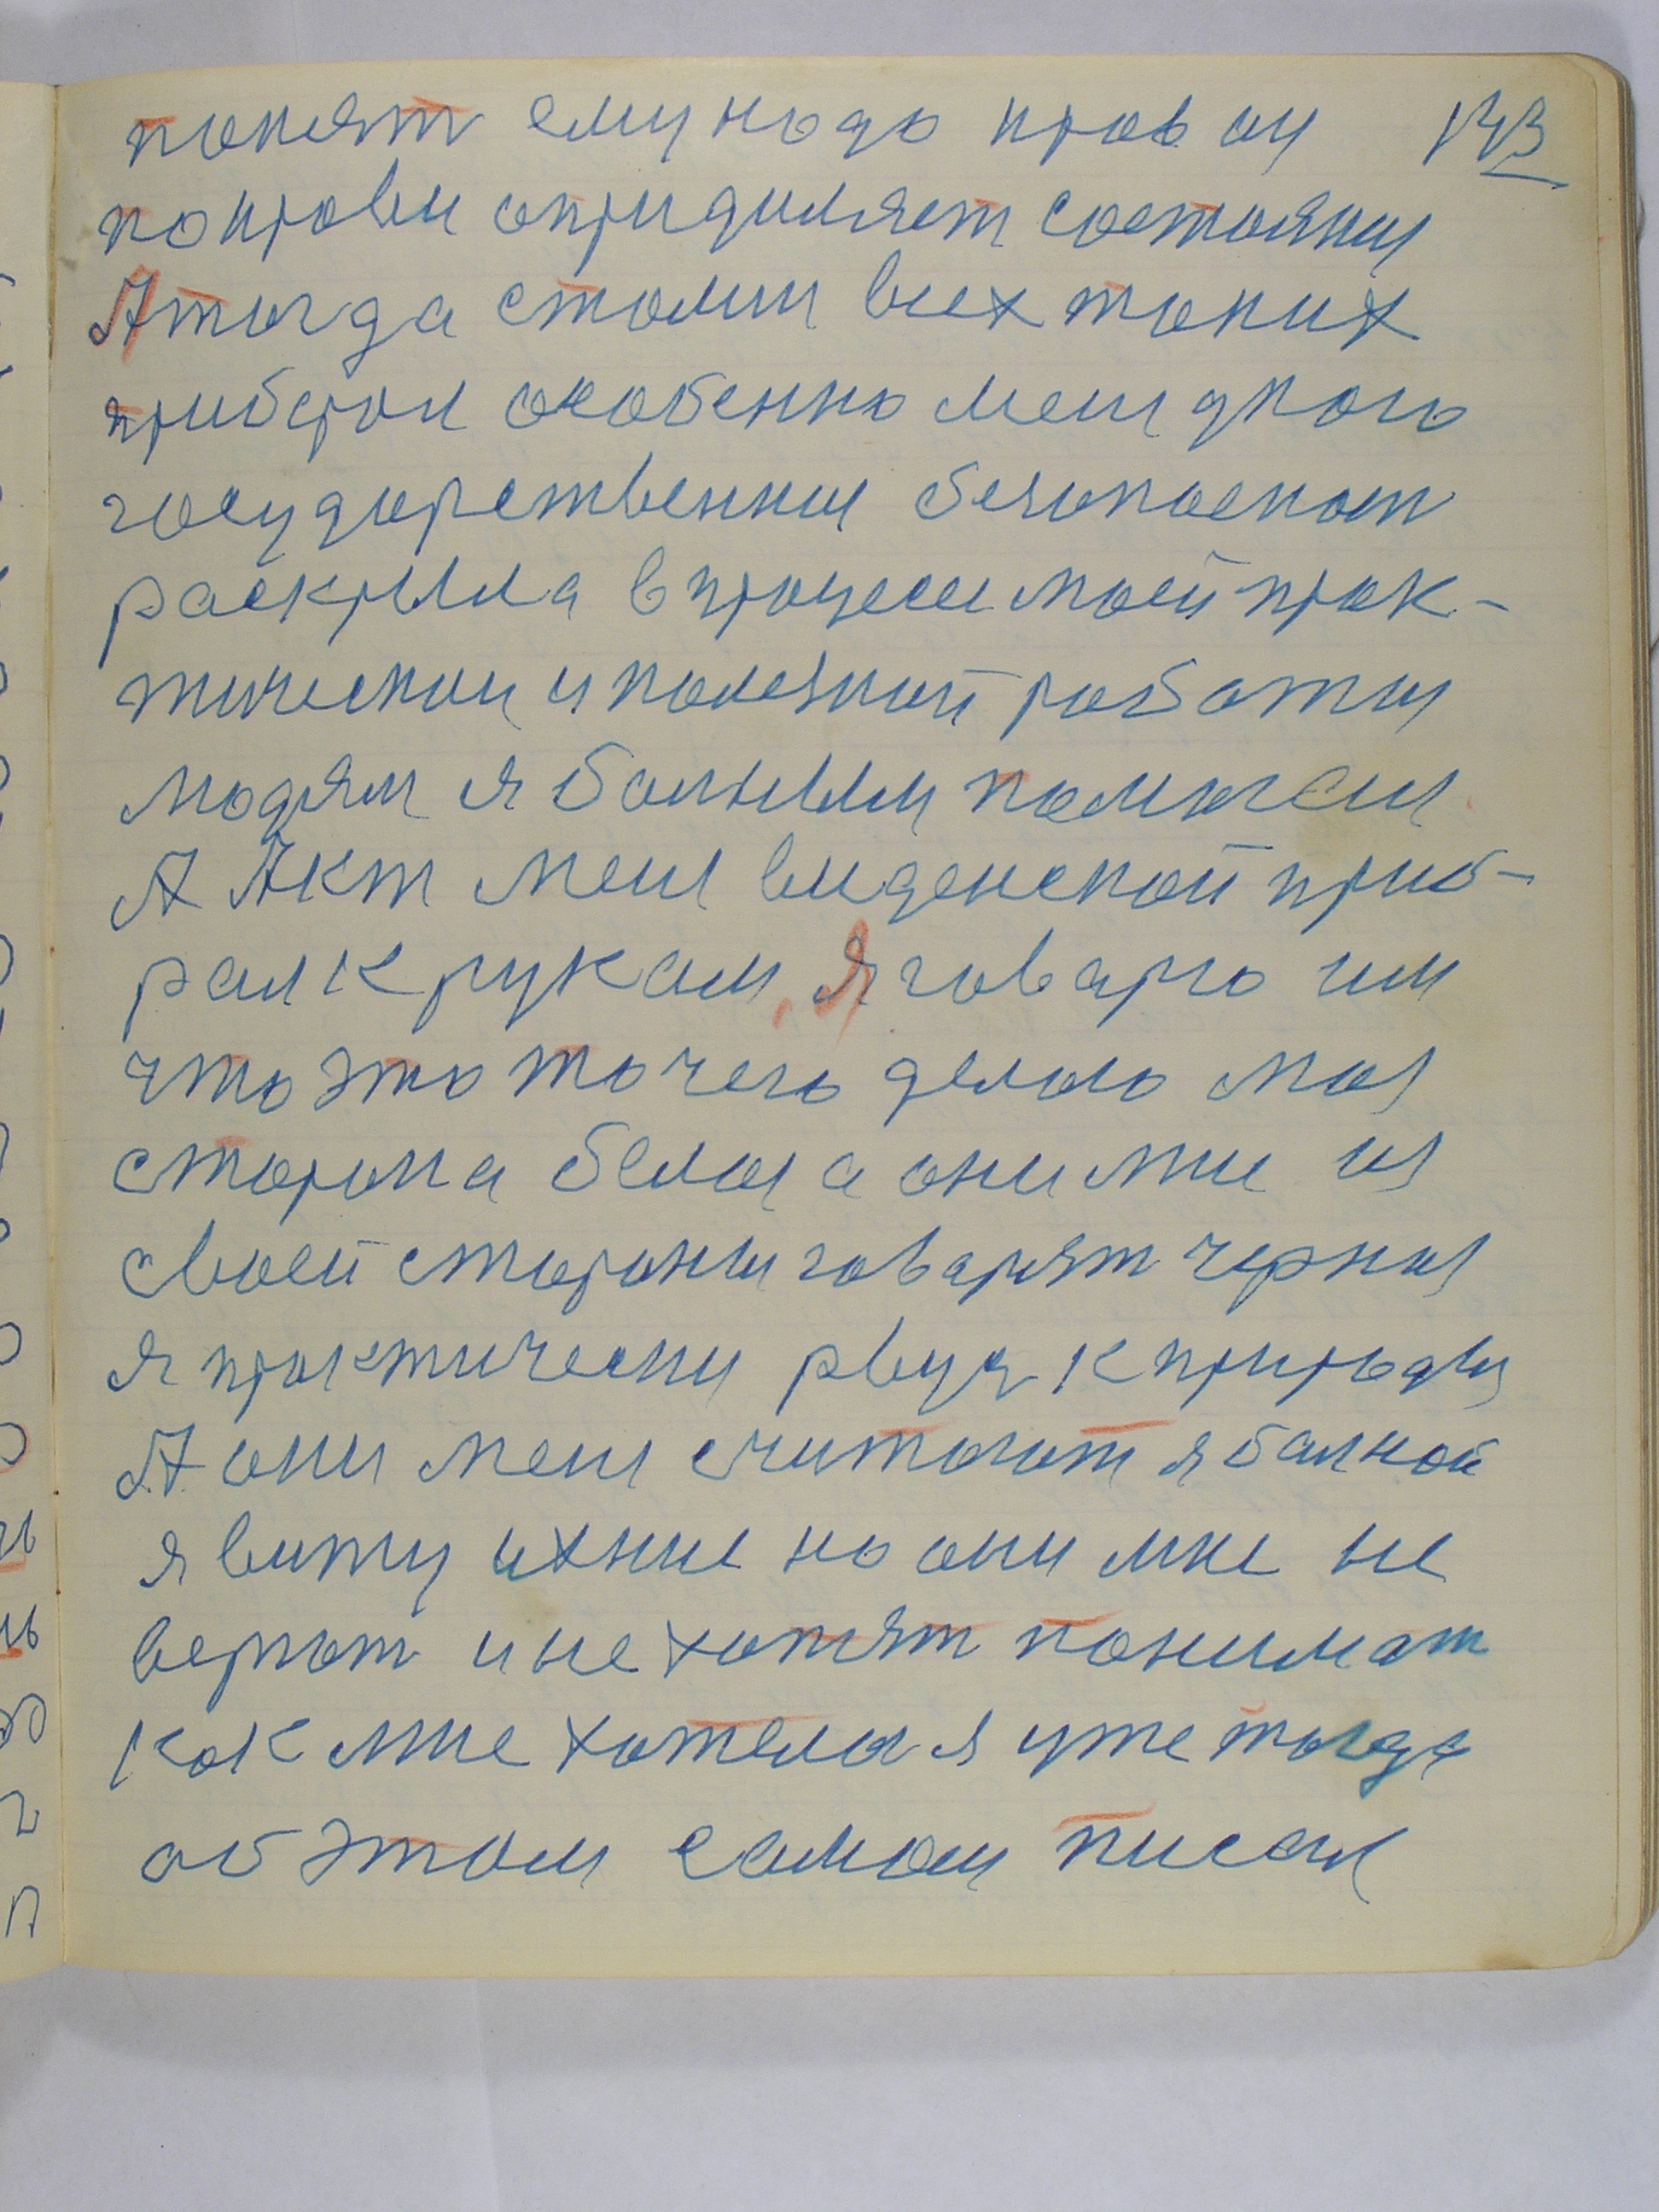 понят ему надо кровы 143
покрови определяет состояния
А тогда стали всех таких
прибрал особенно меня дкого
государственния безопаснот
раскрыла в процесе моей прак-
тическои и полезной работы
людям я больным помогал
А Акт меня введенской приб-
рал к рукам, Я говарю им
что это то чего делаю моя
сторона белая а они мне из
своей стороны говарят черная
я практически рвуся к природы
А они меня считают я балной
я вижу ихние но они мне не
верют и не хотят понимат
как мне хотелая я уже тогда
об этом самом писал